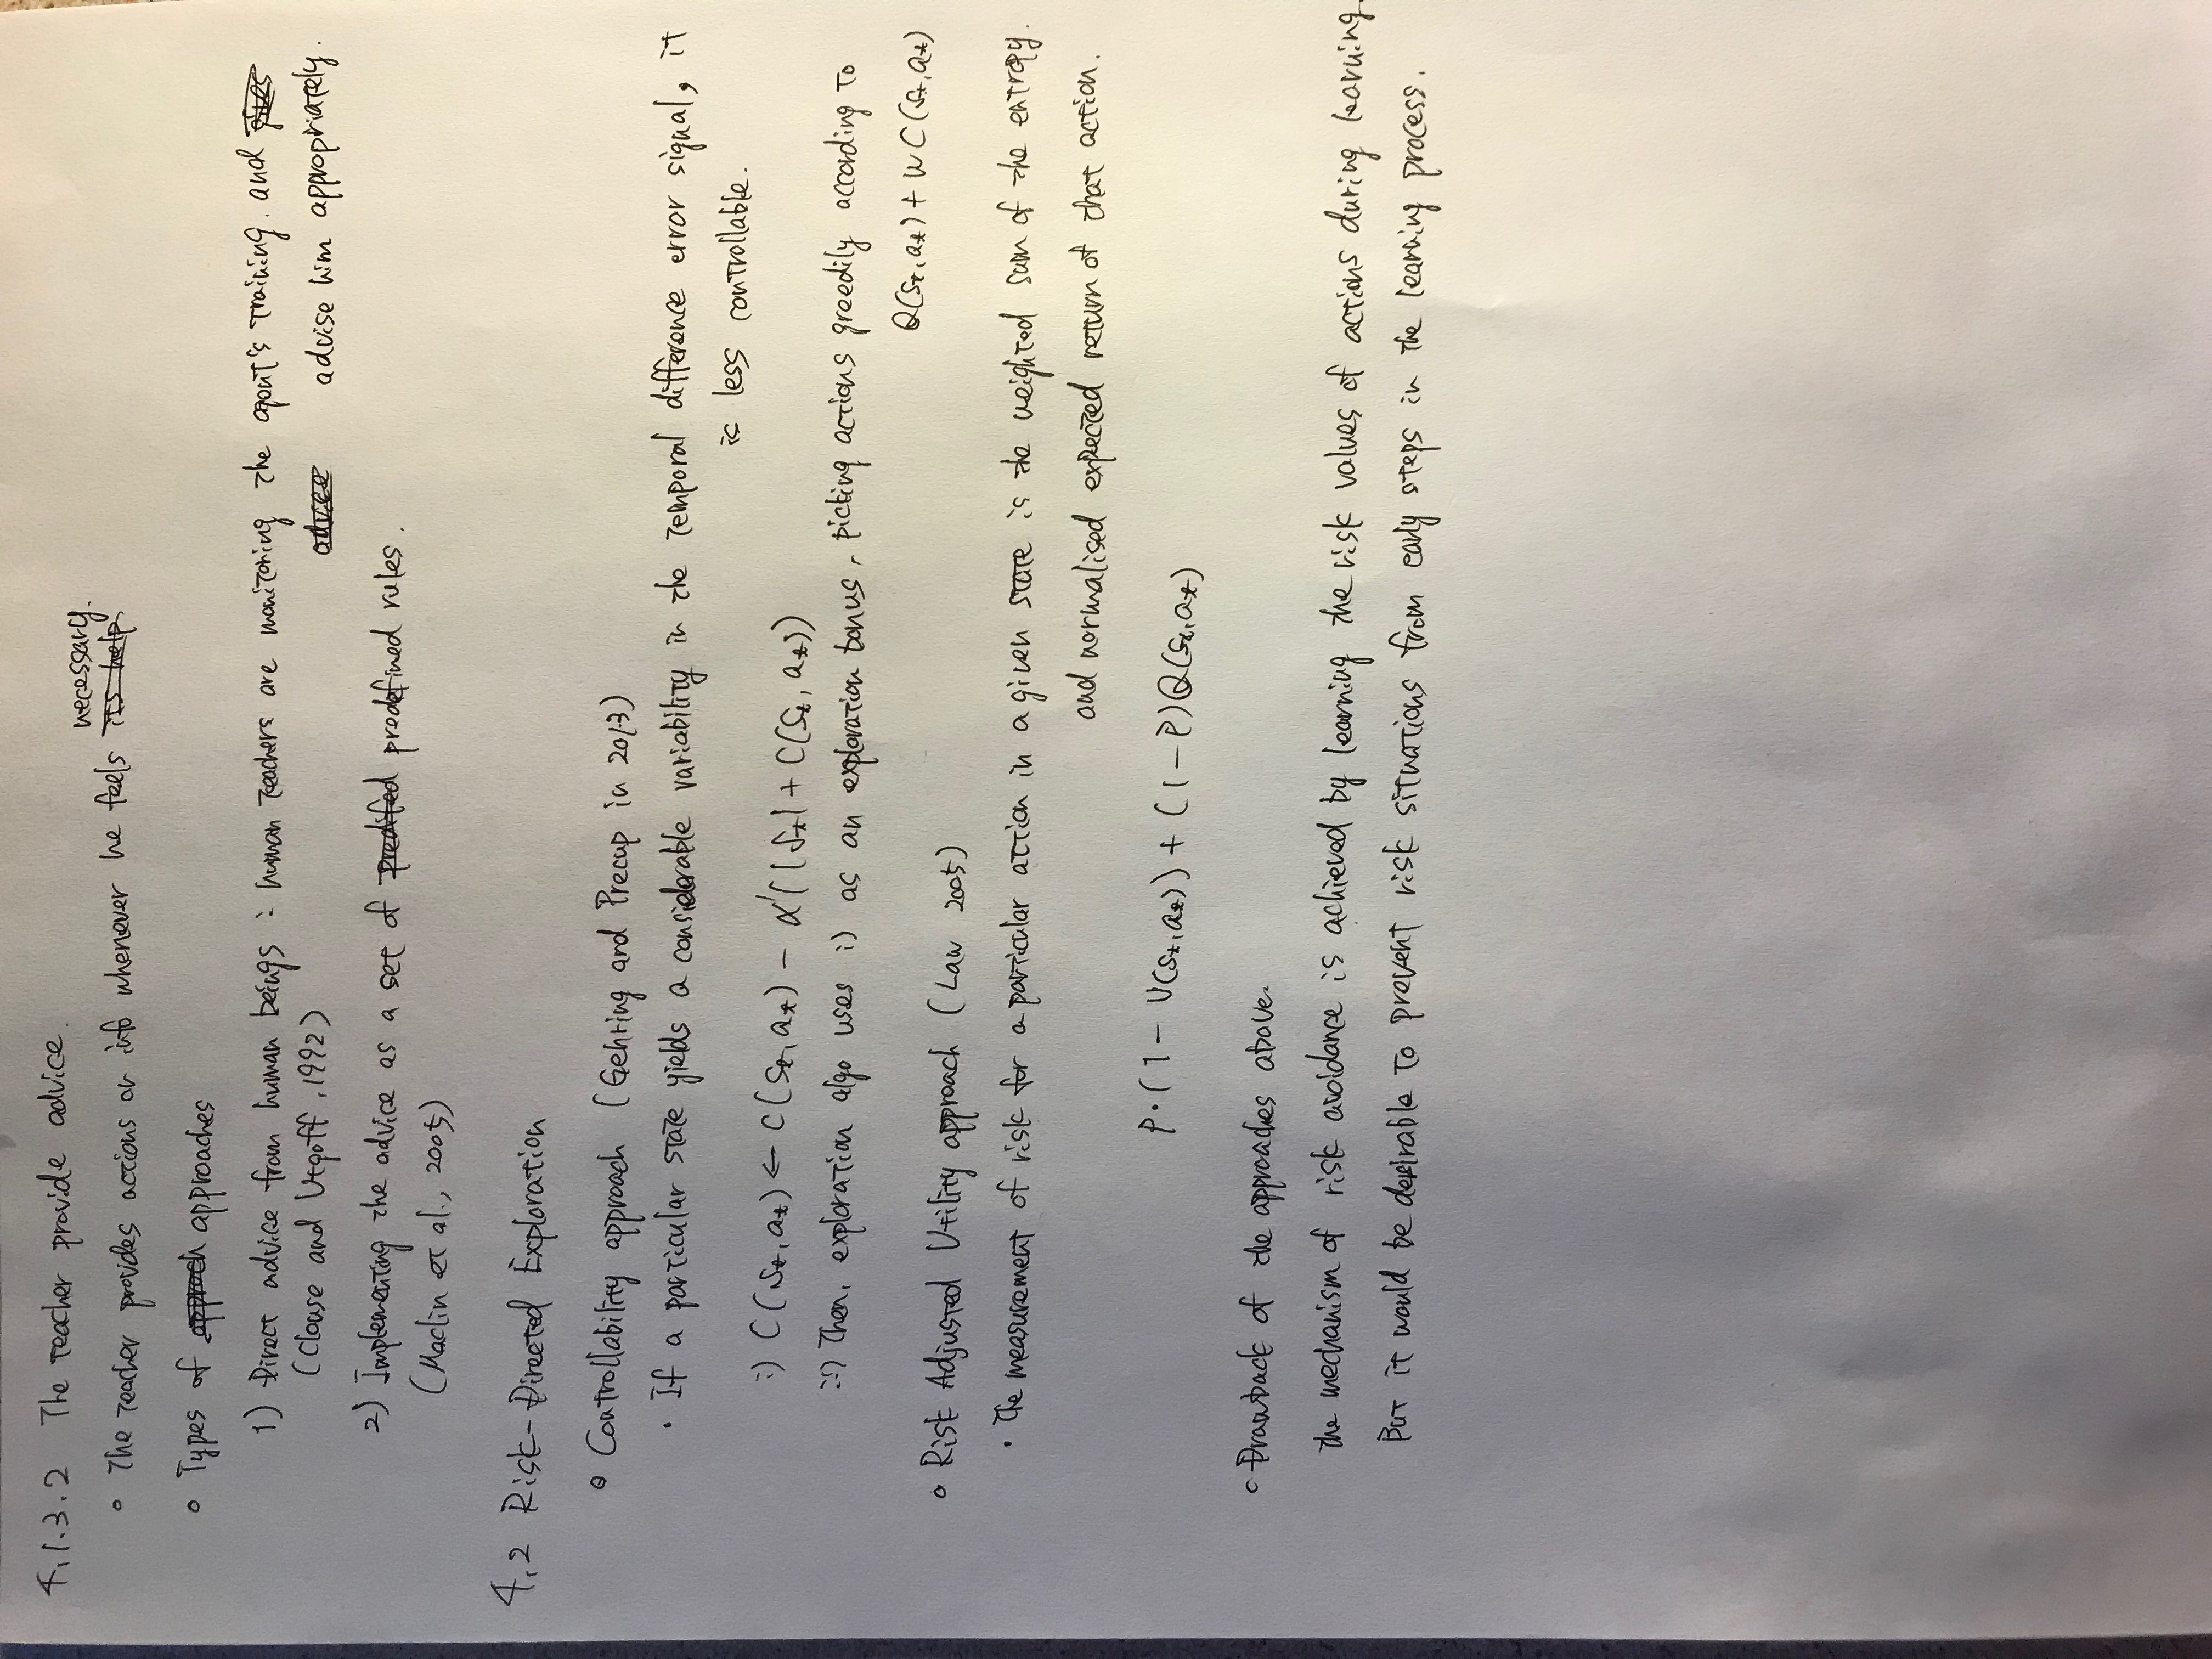 4.1.3.2 The teacher provide advice.
necessary.
◦ The teacher provides actions or info whenever he feels its help
◦ Types of approch approaches
1) Direct advice from human beings : human teachers are monitoring the agent's training. and gives
(Clouse and Utgoff, 1992) advice advise him appropriately.
2) Implementing the advice as a set of predifed predefined rules.
(Maclin et al., 2005)
4.2 Risk-Directed Exploration
◦ Controllability approach (Gehring and Precup in 2013)
· If a particular state yields a considerable variability in the temporal difference error signal, it
is less controllable.
i) C(s_t, a_t) ← C(s_t, a_t) - α'(|δ_t| + C(s_t, a_t))
ii) Then, exploration algo uses i) as an exploration bonus, picking actions greedily according to
Q(s_t, a_t) + w C(s_t, a_t)
◦ Risk Adjusted Utility approach (Law 2005)
· The measurement of risk for a particular action in a given state is the weighted sum of the entropy.
and normalised expected return of that action.
p·(1 - U(s_t, a_t)) + (1 - p)Q(s_t, a_t)
◦ Drawback of the approaches above.
the mechanism of risk avoidance is achieved by learning the risk values of actions during learning.
But it would be desirable to prevent risk situations from early steps in the learning process.